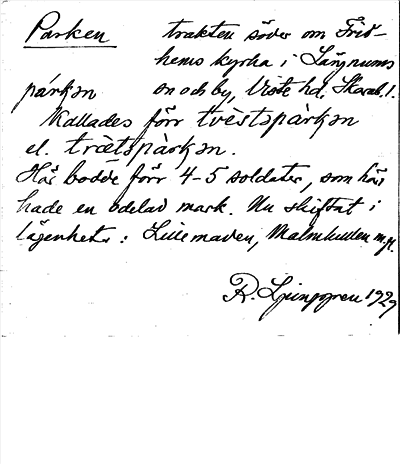 Parken trakten söder om Frid-
hems kyrka i Längnums
párkən sn och by, Viste hd. Skarab. l.
Kallades förr tvèstspàrkən
el. trætspàrkən.
Här bodde förr 4-5 soldater, som här
hade en odelad mark. Nu skiftat i
lägenheter: Lillemaden, Malmkullen m.fl.
R. Ljunggren 1929